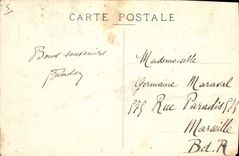 CARTE POSTALE
Bons souvenirs
Mademoiselle
Germaine Maraval
Rue Paradis
Marseille
B.d.R